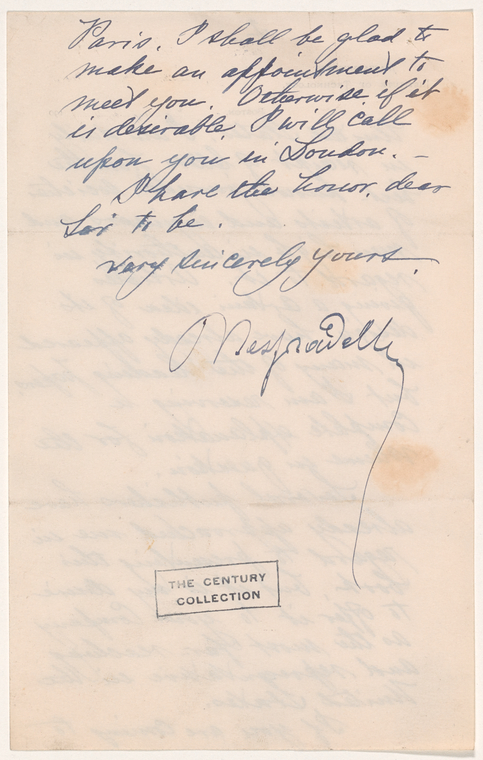 Paris. I shall be glad to
make an appointment to
meet you. Otherwise if it
is desirable I will call
upon you in London. –
I have the honor, dear
Sir to be.
very sincerely yours.
THE CENTURY
COLLECTION